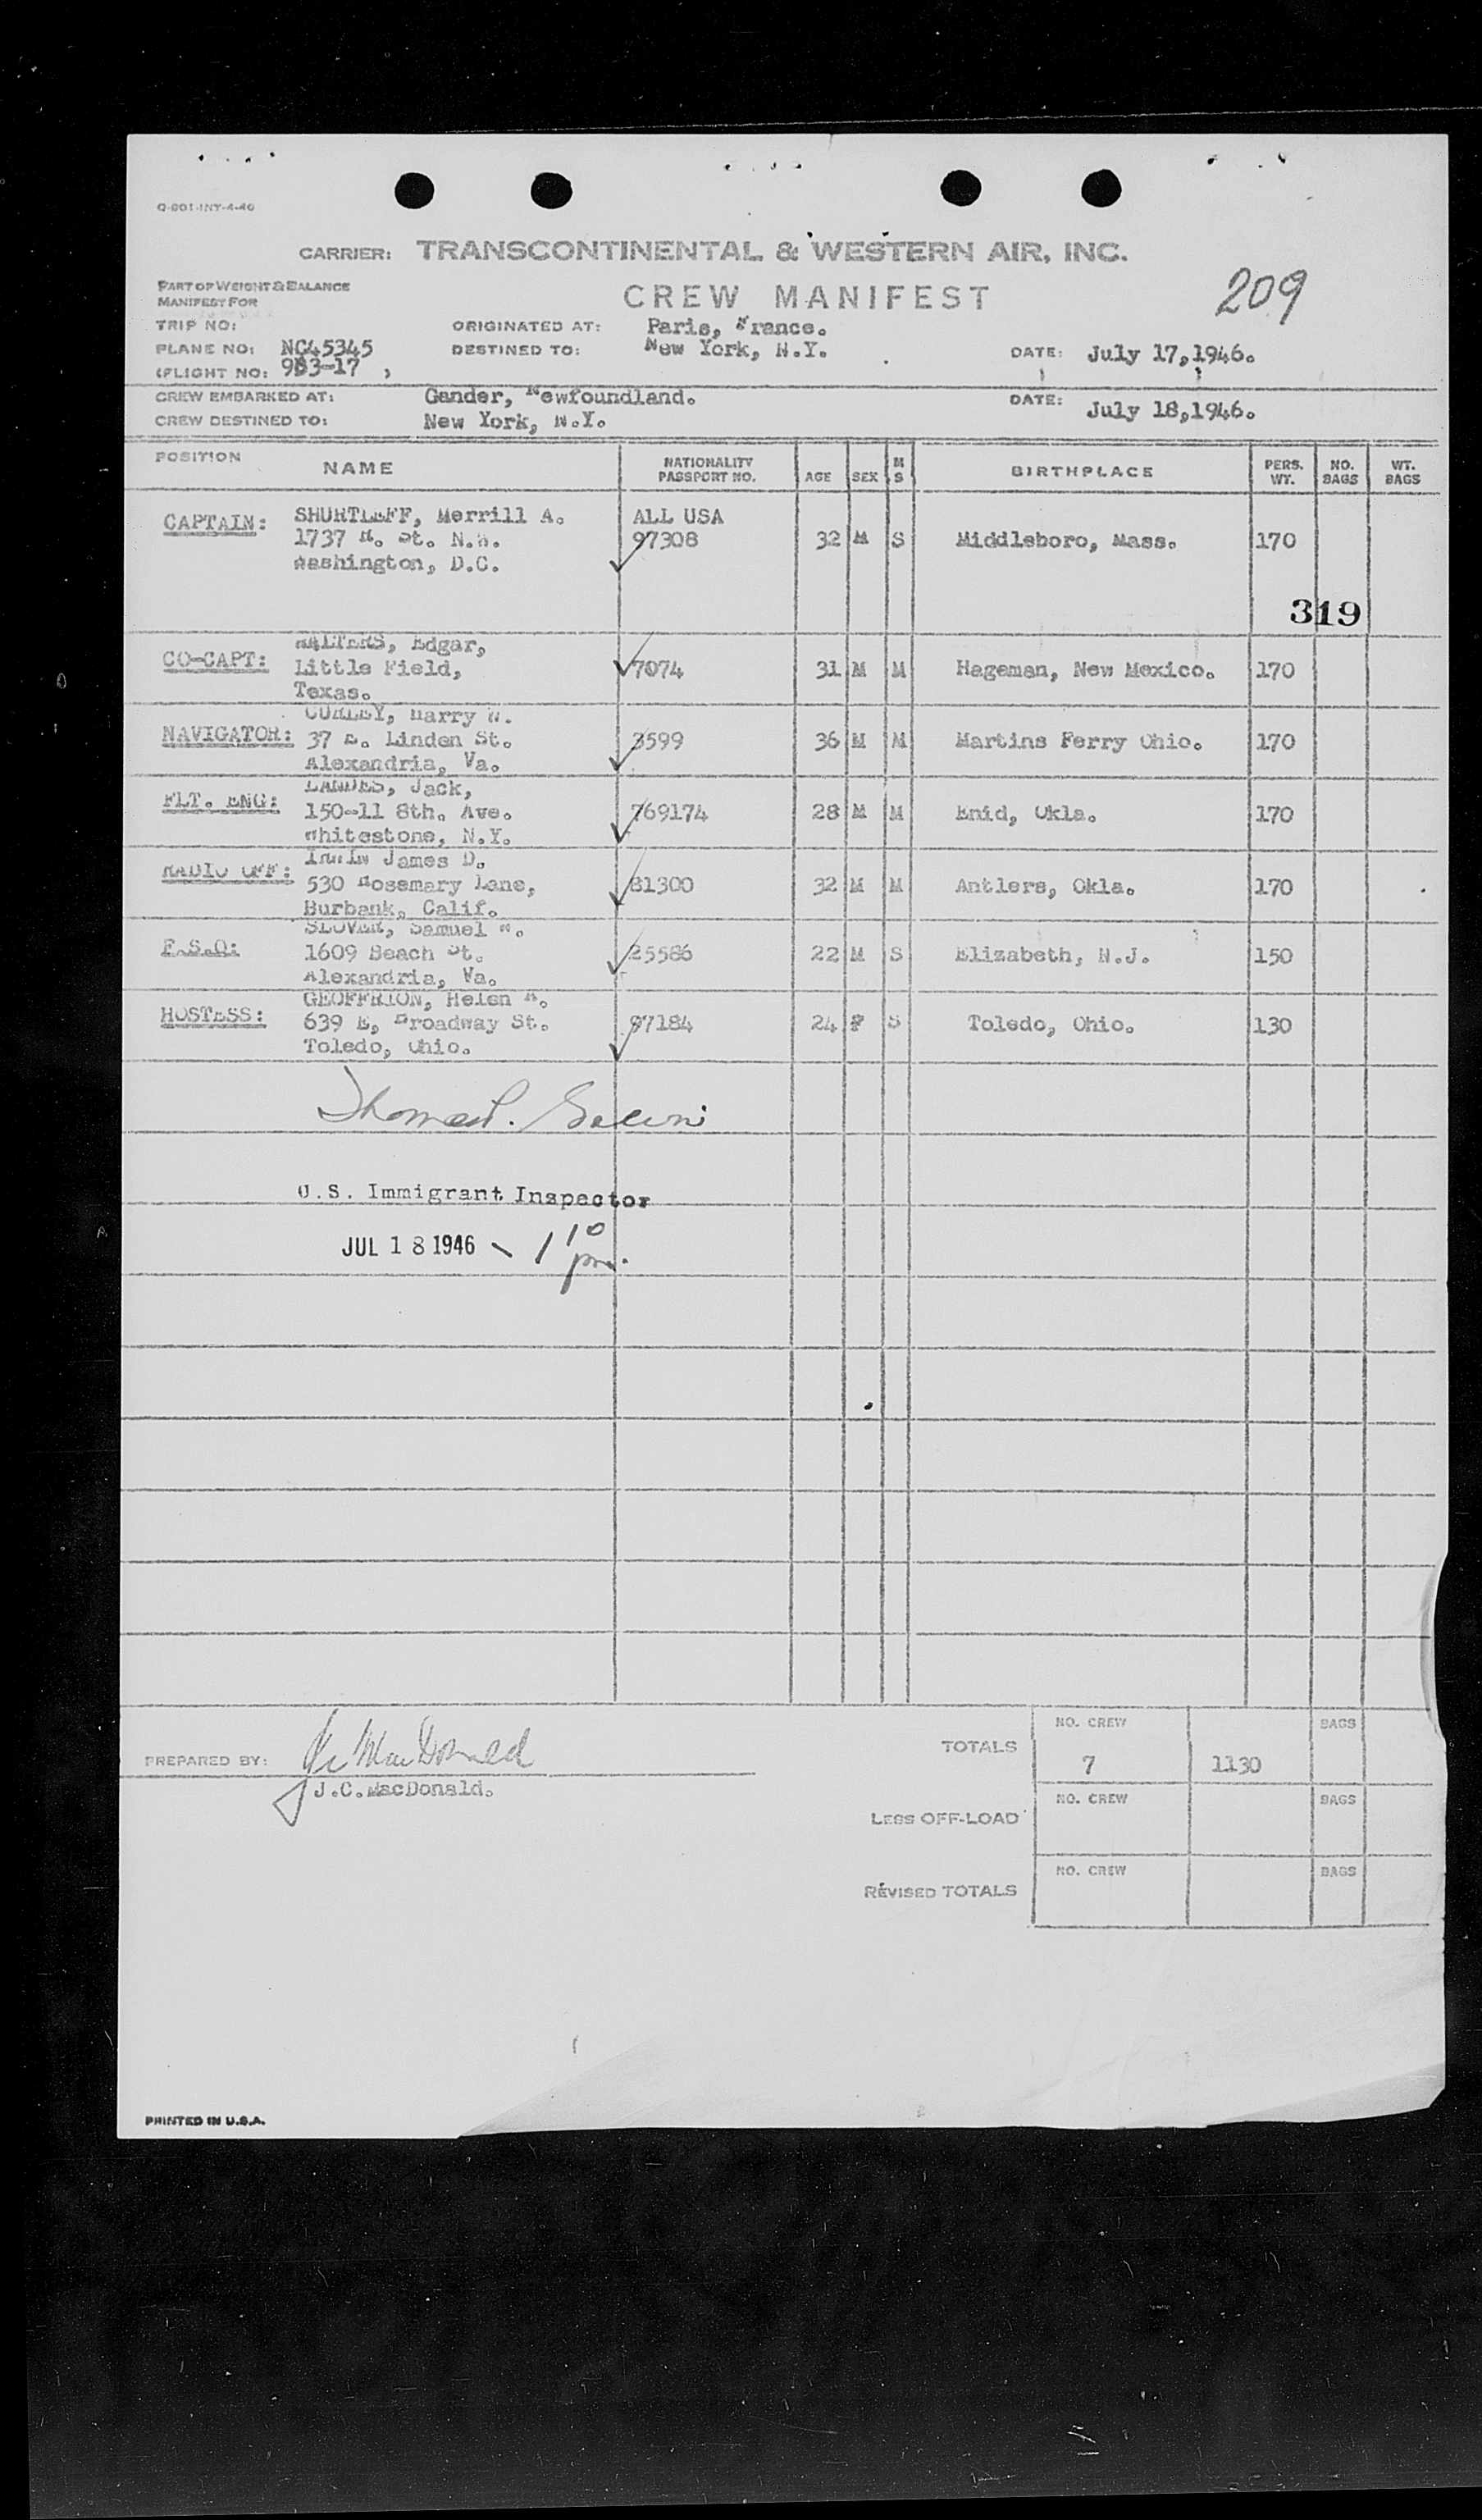 Q-801-INY-4-46
CARRIER: TRANSCONTINENTAL & WESTERN AIR, INC.
PART OF WEIGHT & BALANCE
MANIFEST FOR
CREW MANIFEST
209
TRIP NO:
ORIGINATED AT: Paris, France.
PLANE NO: NC45345
DESTINED TO: New York, N.Y.
DATE: July 17,1946.
(FLIGHT NO: 9B3-17 ,
CREW EMBARKED AT: Gander, Newfoundland.
DATE: July 18,1946.
CREW DESTINED TO: New York, N.Y.
POSITION NAME NATIONALITY PASSPORT NO. AGE SEX M S BIRTHPLACE PERS. WT. NO. BAGS WT. BAGS
CAPTAIN: SHURTLEFF, Merrill A. ALL USA
1737 H. St. N.W. 97308 32 M S Middleboro, Mass. 170
Washington, D.C.
319
WALTERS, Edgar,
CO-CAPT: Little Field, 7074 31 M M Hageman, New Mexico. 170
Texas.
CURLEY, Harry W.
NAVIGATOR: 37 E. Linden St. 3599 36 M M Martins Ferry Ohio. 170
Alexandria, Va.
LANDES, Jack,
FLT. ENG: 150-11 8th. Ave. 769174 28 M M Enid, Okla. 170
Whitestone, N.Y.
IRWIN James D.
RADIO OFF: 530 Rosemary Lane, 81300 32 M M Antlers, Okla. 170
Burbank, Calif.
SLOVER, Samuel
F.S.O: 1609 Beach St. 25586 22 M S Elizabeth, N.J. 150
Alexandria, Va.
GEOFFRION, Helen
HOSTESS: 639 E, Broadway St. 97184 24 F S Toledo, Ohio. 130
Toledo, Ohio.
U.S. Immigrant Inspector
JUL 18 1946 - 1 10 pm.
PREPARED BY: J C MacDonald
J.C.MacDonald.
TOTALS NO. CREW 7 1130 BAGS
LESS OFF-LOAD NO. CREW BAGS
REVISED TOTALS NO. CREW BAGS
PRINTED IN U.S.A.